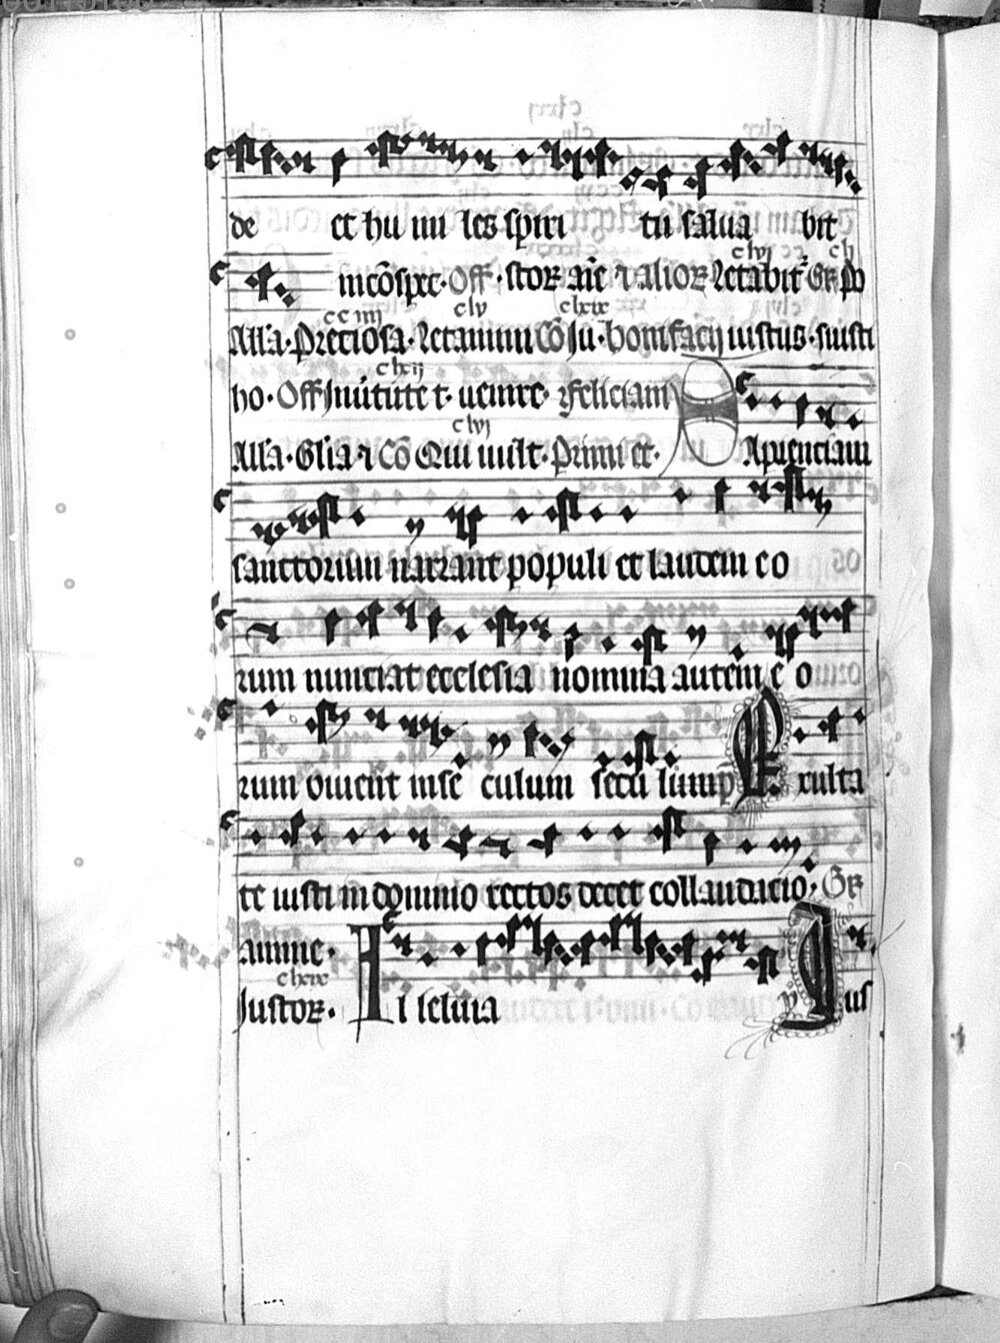 de et hu mi les spiri tu salua bit
clvj clj
in cōspec · Off · stoꝝ
cc iiij clv clxix
Alla · Preciosa · Letamini Cō Ju · bonifacij iustus
clxij
ho · Off Inuētute t · uenire · Feliciani
clvj
Alla · Glia ⁊ Cō Qui uult · Primi et · Sapienciam
sanctorum narrant populi et laudem eo
rum nunciat ecclesia nomina autem e o
rum viuent in se culum secu li Exulta
te iusti in domino rectos decet collaudacio · Gꝝ
anime ·
clxix
Justoꝝ · Al leluia v Jus